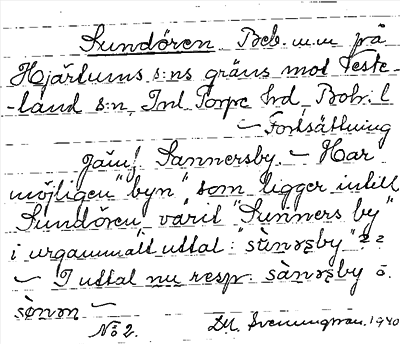 Sundören Beb. m.m på
Hjärtums s:ns gräns mot Veste-
-land s:n, Inl Torpe hd, Boh. l
— Fortsättning
Jäm! Sannersby. — Har
möjligen "byn" som ligger intill
Sundören varit "Sunners by"
i urgammalt uttal: "sànəʂby" ??
— I uttal nu resp. sànəʂby o.
sònən —
No 2. D.A. Svenungsson. 1940